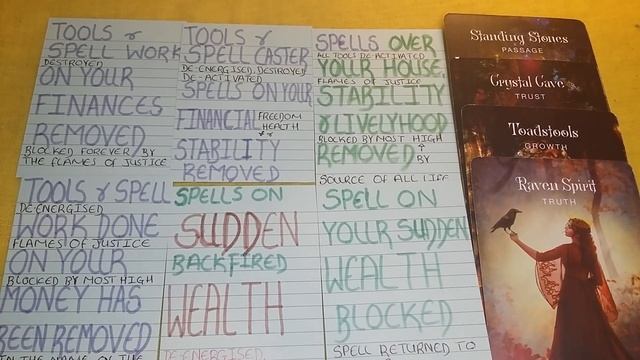 TOOLS &
SPELL WORK
DESTROYED
ON YOUR
FINANCES
REMOVED
BLOCKED FOREVER BY
THE FLAMES OF JUSTICE
TOOLS &
SPELL CASTER
DE-ENERGISED, DESTROYED
DE-ACTIVATED
SPELLS ON YOUR
FINANCIAL FREEDOM
HEALTH
STABILITY
REMOVED
SPELLS OVER
ALL TOOLS DE-ACTIVATED
YOUR HOUSE,
FLAMES OF JUSTICE
STABILITY
& LIVELYHOOD
BLOCKED BY MOST HIGH
REMOVED BY
SOURCE OF ALL LIFE
TOOLS & SPELL
DE-ENERGISED
WORK DONE
FLAMES OF JUSTICE
ON YOUR
BLOCKED BY MOST HIGH
MONEY HAS
BEEN REMOVED
IN THE NAME OF THE
SPELLS ON
SUDDEN
BACKFIRED
WEALTH
DE-ENERGISED
SPELL ON
YOUR SUDDEN
WEALTH
BLOCKED
SPELL RETURNED TO
Standing Stones
PASSAGE
Crystal Cave
TRUST
Toadstools
GROWTH
Raven Spirit
TRUTH